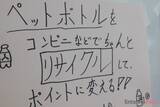 ペットボトルを
コンビニなどでちゃんと
リサイクルして、
ポイントに変える!?